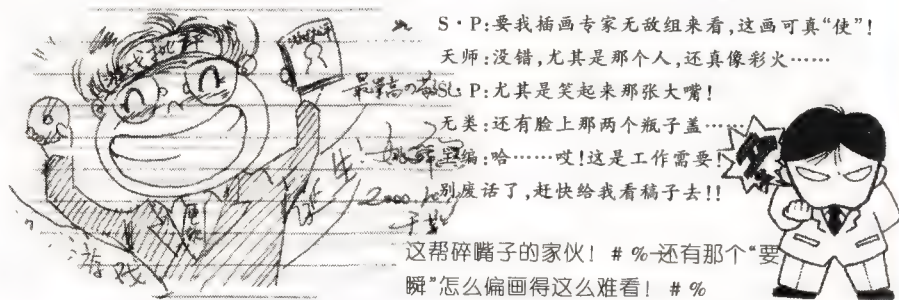 S·P:要我插画专家无敌组来看,这画可真“使”!
天师:没错,尤其是那个人,还真像彩火……
S·P:尤其是笑起来那张大嘴!
无类:还有脸上那两个瓶子盖……
编:哈……哎!这是工作需要!
别废话了,赶快给我看稿子去!!
这帮碎嘴子的家伙! # % 还有那个“要
瞬”怎么偏画得这么难看! # %
最高の
2000.10
于
游戏